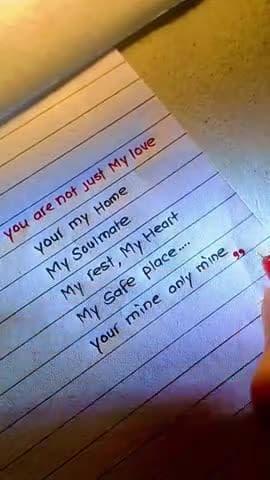 you are not just My love
your my Home
My Soulmate
My rest, My Heart
My Safe place....
your mine only mine ”